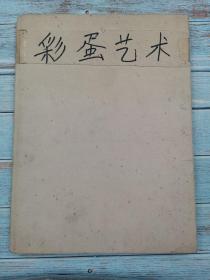 彩蛋艺术